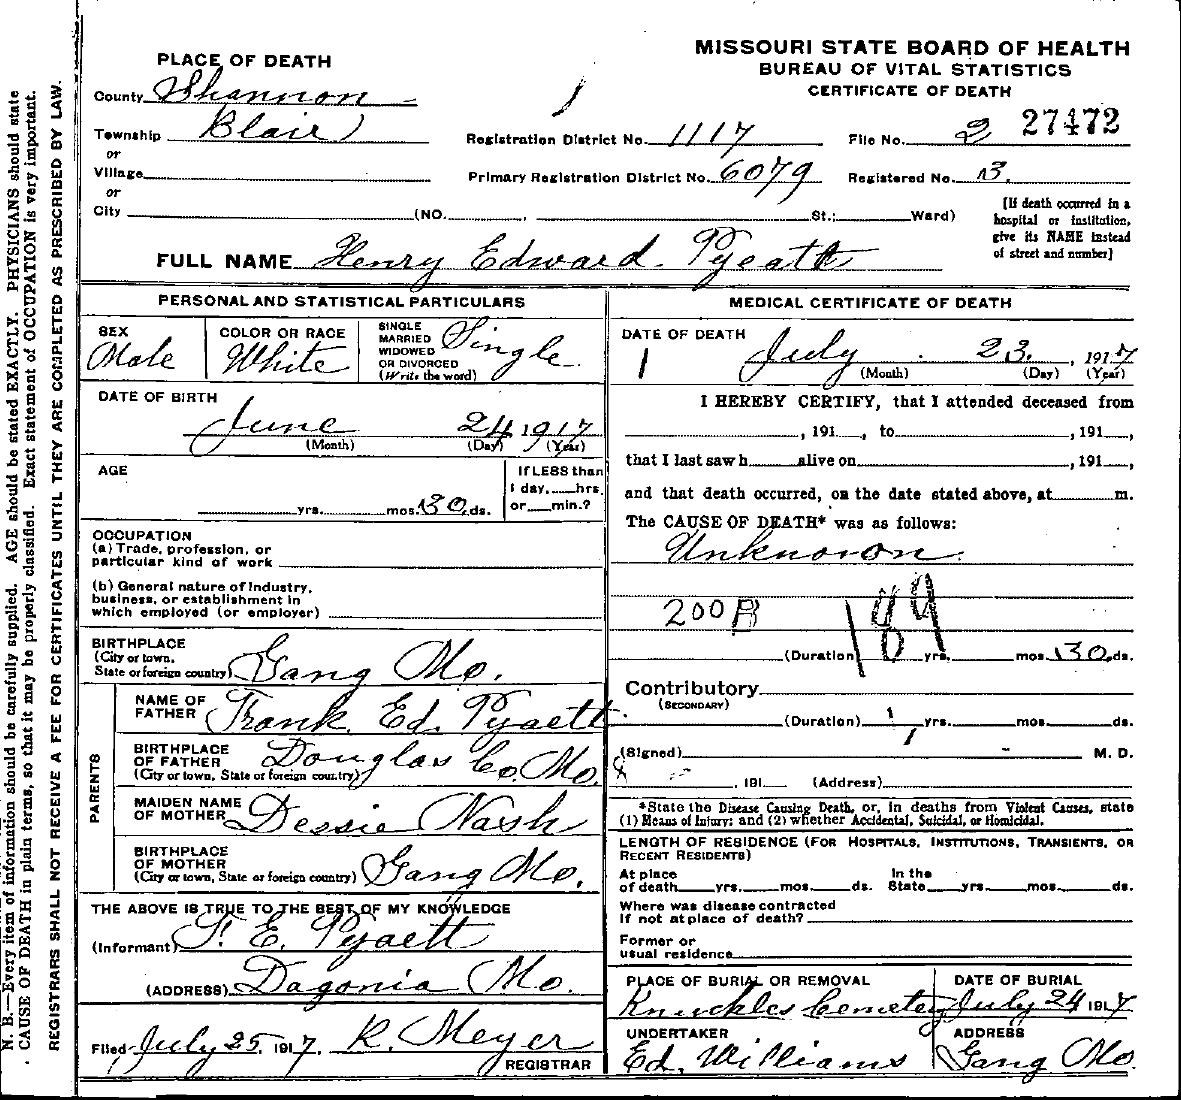 MISSOURI STATE BOARD OF HEALTH
BUREAU OF VITAL STATISTICS
CERTIFICATE OF DEATH
PLACE OF DEATH
County Shannon
Township Blair
or
Village
or
City (NO. , St.; Ward)
Registration District No. 1117
File No. 2 27472
Primary Registration District No. 6079
Registered No. 13.
[If death occurred in a
hospital or institution,
give its NAME instead
of street and number]
FULL NAME Henry Edward Pyeatt
PERSONAL AND STATISTICAL PARTICULARS
SEX
Male
COLOR OR RACE
White
SINGLE
MARRIED
WIDOWED
OR DIVORCED
(Write the word)
Single
DATE OF BIRTH
June 24 1917
(Month) (Day) (Year)
AGE
yrs. mos. 30 ds.
If LESS than
1 day, hrs.
or min.?
OCCUPATION
(a) Trade, profession, or
particular kind of work
(b) General nature of industry,
business, or establishment in
which employed (or employer)
BIRTHPLACE
(City or town,
State or foreign country) Gang Mo.
PARENTS
NAME OF
FATHER Frank Ed. Pyaett
BIRTHPLACE
OF FATHER
(City or town, State or foreign country) Douglas Co. Mo.
MAIDEN NAME
OF MOTHER Dessie Nash
BIRTHPLACE
OF MOTHER
(City or town, State or foreign country) Gang Mo.
THE ABOVE IS TRUE TO THE BEST OF MY KNOWLEDGE
(Informant) F. E. Pyaett
(ADDRESS) Dagonia Mo.
Filed July 25, 1917. R. Meyer
REGISTRAR
MEDICAL CERTIFICATE OF DEATH
DATE OF DEATH
July 23, 1917
(Month) (Day) (Year)
I HEREBY CERTIFY, that I attended deceased from
, 191 , to , 191 ,
that I last saw h alive on , 191 ,
and that death occurred, on the date stated above, at m.
The CAUSE OF DEATH* was as follows:
Unknown.
200B 189
(Duration) yrs. mos. 30 ds.
Contributory
(SECONDARY)
(Duration) yrs. mos. ds.
(Signed) M. D.
, 191 (Address)
*State the Disease Causing Death, or, in deaths from Violent Causes, state
(1) Means of Injury; and (2) whether Accidental, Suicidal, or Homicidal.
LENGTH OF RESIDENCE (FOR HOSPITALS, INSTITUTIONS, TRANSIENTS, OR
RECENT RESIDENTS)
At place
of death yrs. mos. ds.
In the
State yrs. mos. ds.
Where was disease contracted
if not at place of death?
Former or
usual residence
PLACE OF BURIAL OR REMOVAL
Knuckles Cemetery
DATE OF BURIAL
July 24 1917
UNDERTAKER
Ed. Williams
ADDRESS
Gang Mo.
N. B.—Every item of information should be carefully supplied. AGE should be stated EXACTLY. PHYSICIANS should state
CAUSE OF DEATH in plain terms, so that it may be properly classified. Exact statement of OCCUPATION is very important.
REGISTRARS SHALL NOT RECEIVE A FEE FOR CERTIFICATES UNTIL THEY ARE COMPLETED AS PRESCRIBED BY LAW.